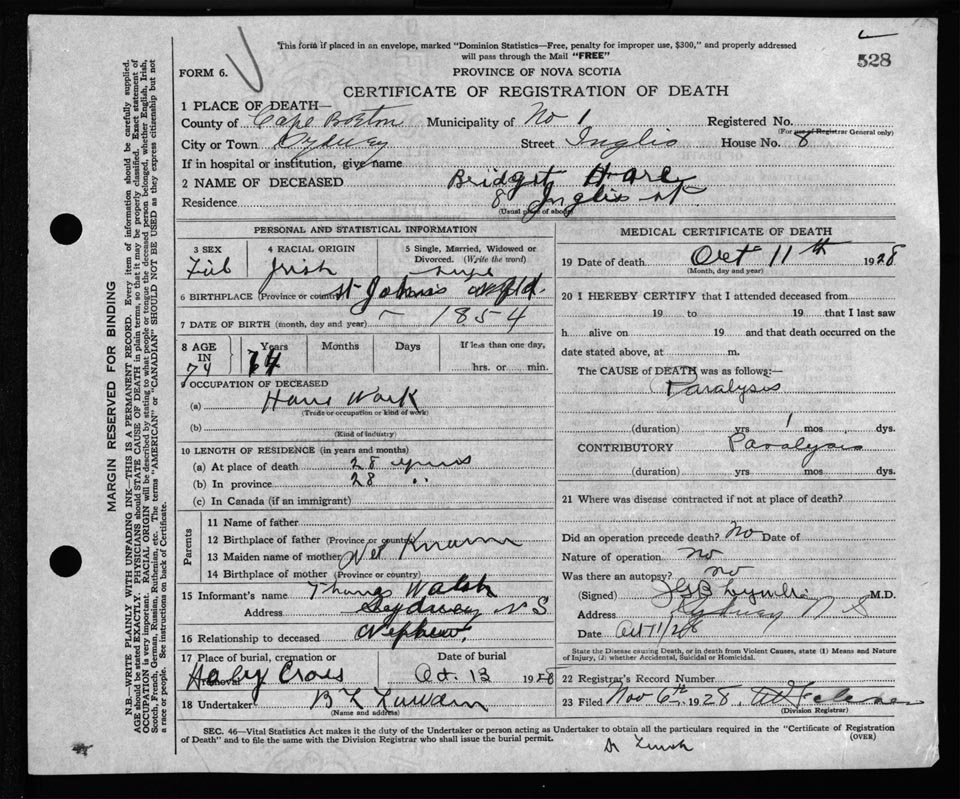 This form if placed in an envelope, marked "Dominion Statistics—Free, penalty for improper use, $300," and properly addressed
will pass through the Mail "FREE"
528
FORM 6.
PROVINCE OF NOVA SCOTIA
CERTIFICATE OF REGISTRATION OF DEATH
MARGIN RESERVED FOR BINDING
N.B.—WRITE PLAINLY WITH UNFADING INK—THIS IS A PERMANENT RECORD. Every item of information should be carefully supplied.
AGE should be stated EXACTLY. PHYSICIANS should STATE CAUSE OF DEATH in plain terms, so that it may be properly classified. Exact statement of
OCCUPATION is very important. RACIAL ORIGIN will be described by stating to what people or tongue the deceased person belonged, whether English, Irish,
Scotch, French, German, Russian, Ruthenian, etc. The terms "AMERICAN" or "CANADIAN" SHOULD NOT BE USED as they express citizenship but not
a race or people. See instructions on back of Certificate.
1 PLACE OF DEATH—
County of Cape Breton Municipality of No 1 Registered No.
(For use of Registrar General only)
City or Town Sydney Street Inglis House No. 8
If in hospital or institution, give name
2 NAME OF DECEASED Bridget Hare
Residence 8 Inglis st
(Usual place of abode)
PERSONAL AND STATISTICAL INFORMATION
3 SEX 4 RACIAL ORIGIN 5 Single, Married, Widowed or Divorced. (Write the word)
Irish
6 BIRTHPLACE (Province or country) St Johns Nfld.
7 DATE OF BIRTH (month, day and year) — 1854
8 AGE IN Years Months Days If less than one day,
74 74 hrs. or min.
9 OCCUPATION OF DECEASED
(a) House Work
(Trade or occupation or kind of work)
(b)
(Kind of industry)
10 LENGTH OF RESIDENCE (in years and months)
(a) At place of death 28 years
(b) In province 28 "
(c) In Canada (if an immigrant)
Parents
11 Name of father
12 Birthplace of father (Province or country)
13 Maiden name of mother Not Known
14 Birthplace of mother (Province or country)
15 Informant's name Thomas Walsh
Address Sydney N S
16 Relationship to deceased Nephew
17 Place of burial, cremation or removal Date of burial
Holy Cross Oct. 13 1928
18 Undertaker
(Name and address)
MEDICAL CERTIFICATE OF DEATH
19 Date of death Oct 11th 1928
(Month, day and year)
20 I HEREBY CERTIFY that I attended deceased from
19 to 19 that I last saw
h alive on 19 and that death occurred on the
date stated above, at m.
The CAUSE of DEATH was as follows:—
Paralysis
(duration) yrs 1 mos dys.
CONTRIBUTORY Paralysis
(duration) yrs mos dys.
21 Where was disease contracted if not at place of death?
Did an operation precede death? No Date of
Nature of operation no
Was there an autopsy? no
(Signed) M.D.
Address Sydney N S
Date Oct 11/28
State the Disease causing Death, or in death from Violent Causes, state (1) Means and Nature
of Injury, (2) whether Accidental, Suicidal or Homicidal.
22 Registrar's Record Number
23 Filed Nov 6th 1928.
(Division Registrar)
SEC. 46—Vital Statistics Act makes it the duty of the Undertaker or person acting as Undertaker to obtain all the particulars required in the "Certificate of Registration
of Death" and to file the same with the Division Registrar who shall issue the burial permit.
(OVER)